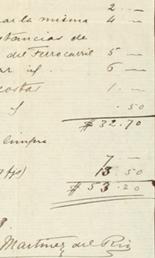 2 .. —
ar la misma 4 —
stancias de
del Ferrocarril 5 —
ar if. 6 —
costas 1 .—
if .50
$ 32.70
limpra
7 —
13 .50
$ 53 .20
Martinez del Rio